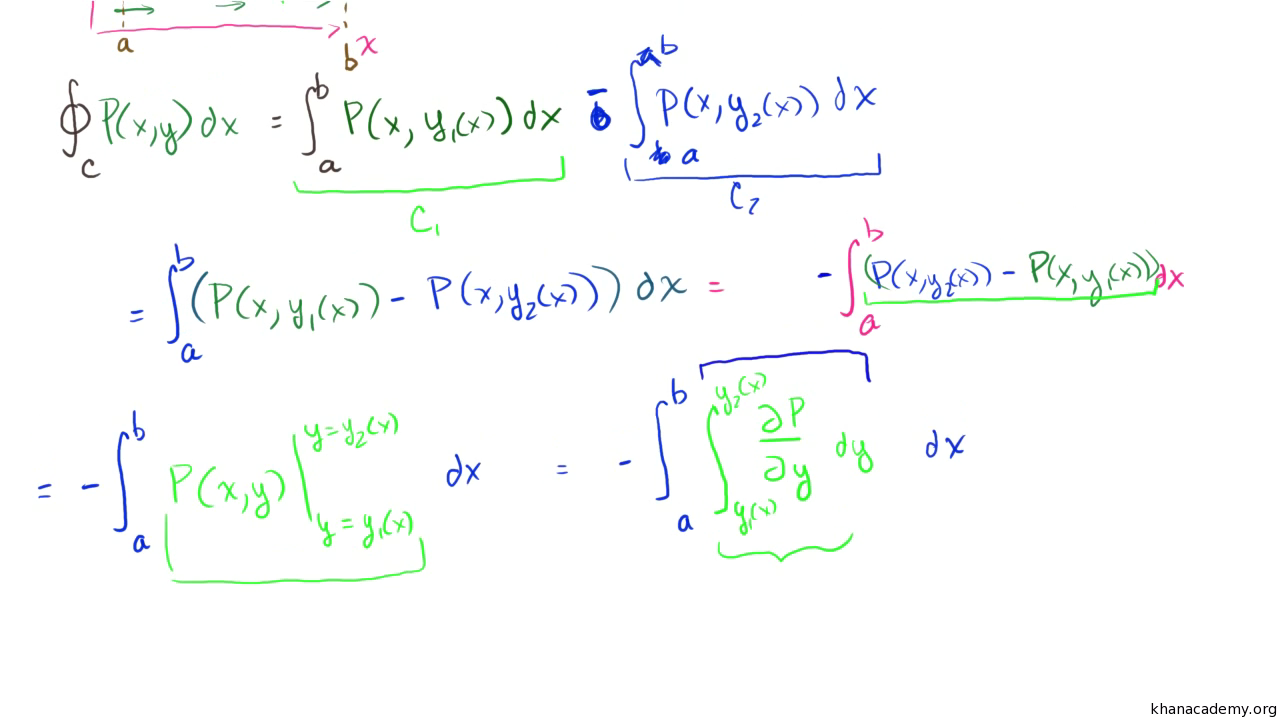 a b x
∮_C P(x,y) dx = ∫_a^b P(x, y₁(x)) dx - ∫_a^b P(x, y₂(x)) dx
C₁ C₂
= ∫_a^b (P(x, y₁(x)) - P(x, y₂(x))) dx = - ∫_a^b (P(x, y₂(x)) - P(x, y₁(x))) dx
= - ∫_a^b P(x,y) |_{y = y₁(x)}^{y = y₂(x)} dx = - ∫_a^b ∫_{y₁(x)}^{y₂(x)} ∂P/∂y dy dx
khanacademy.org